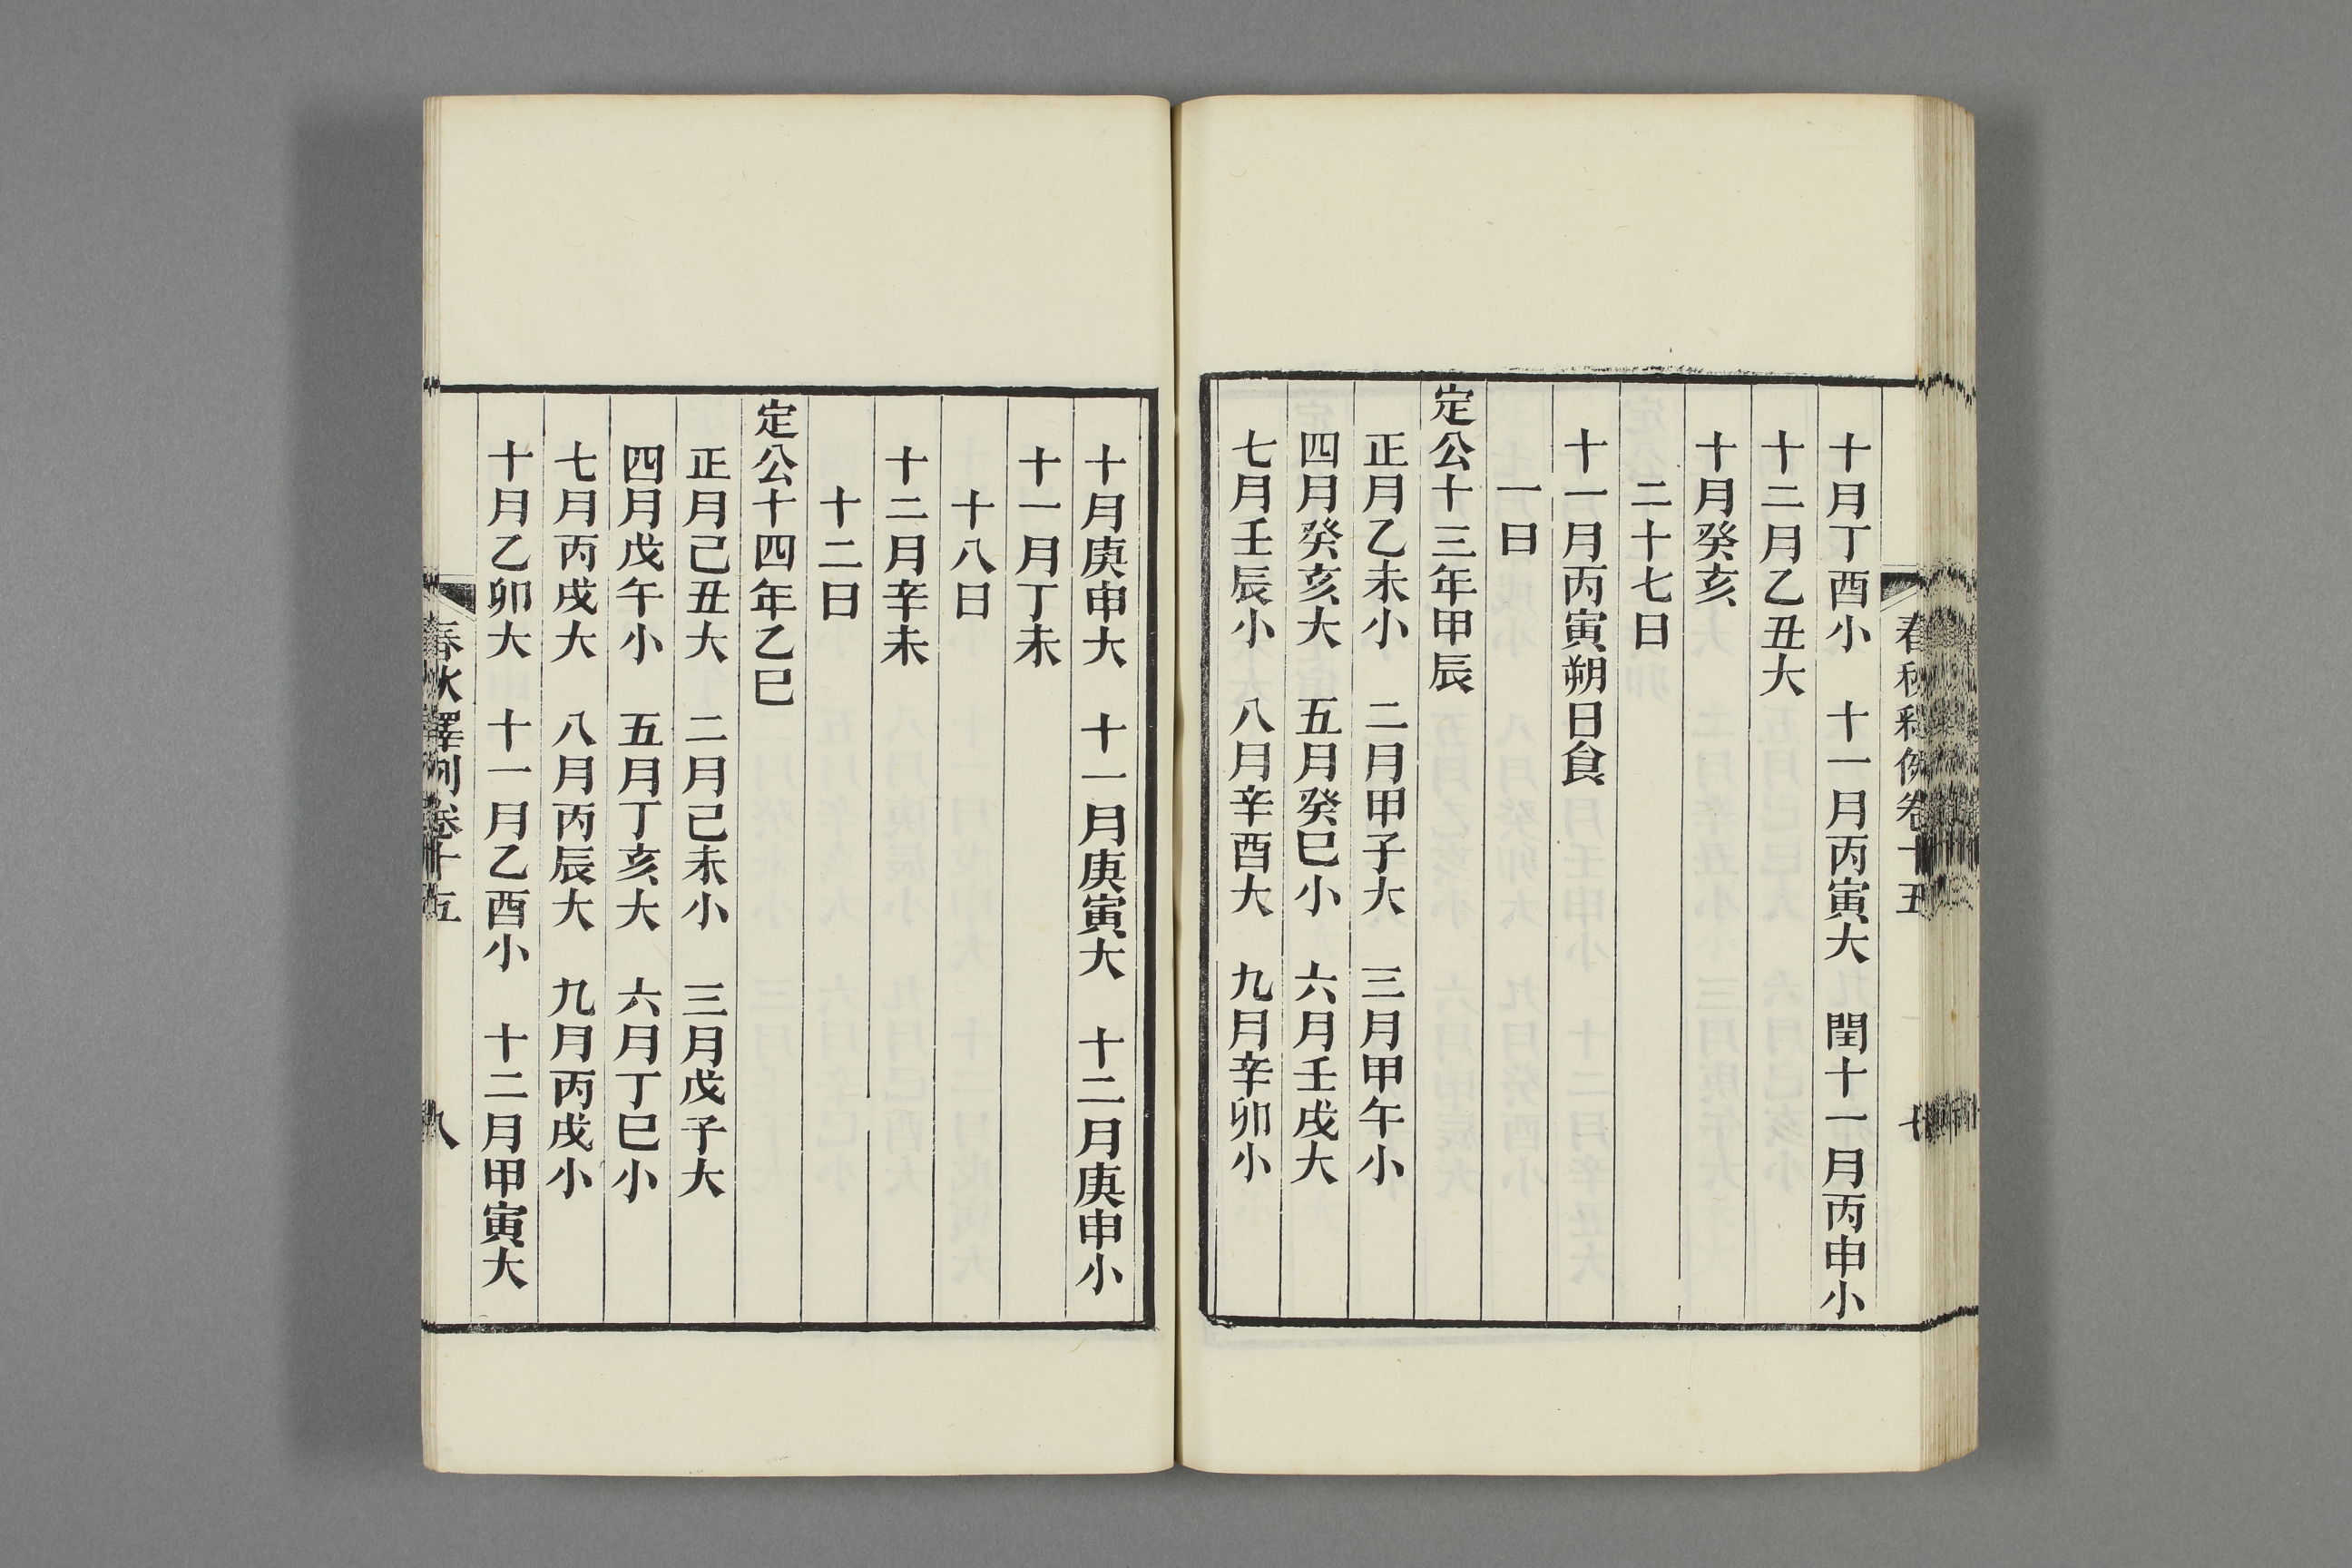 春秋釋例卷十五 七
十月丁酉小 十一月丙寅大 閏十一月丙申小
十二月乙丑大
十月癸亥
二十七日
十一月丙寅朔日食
一日
定公十三年甲辰
正月乙未小 二月甲子大 三月甲午小
四月癸亥大 五月癸巳小 六月壬戌大
七月壬辰小 八月辛酉大 九月辛卯小
十月庚申大 十一月庚寅大 十二月庚申小
十一月丁未
十八日
十二月辛未
十二日
定公十四年乙巳
正月己丑大 二月己未小 三月戊子大
四月戊午小 五月丁亥大 六月丁巳小
七月丙戌大 八月丙辰大 九月丙戌小
十月乙卯大 十一月乙酉小 十二月甲寅大
春秋釋例卷十五 八